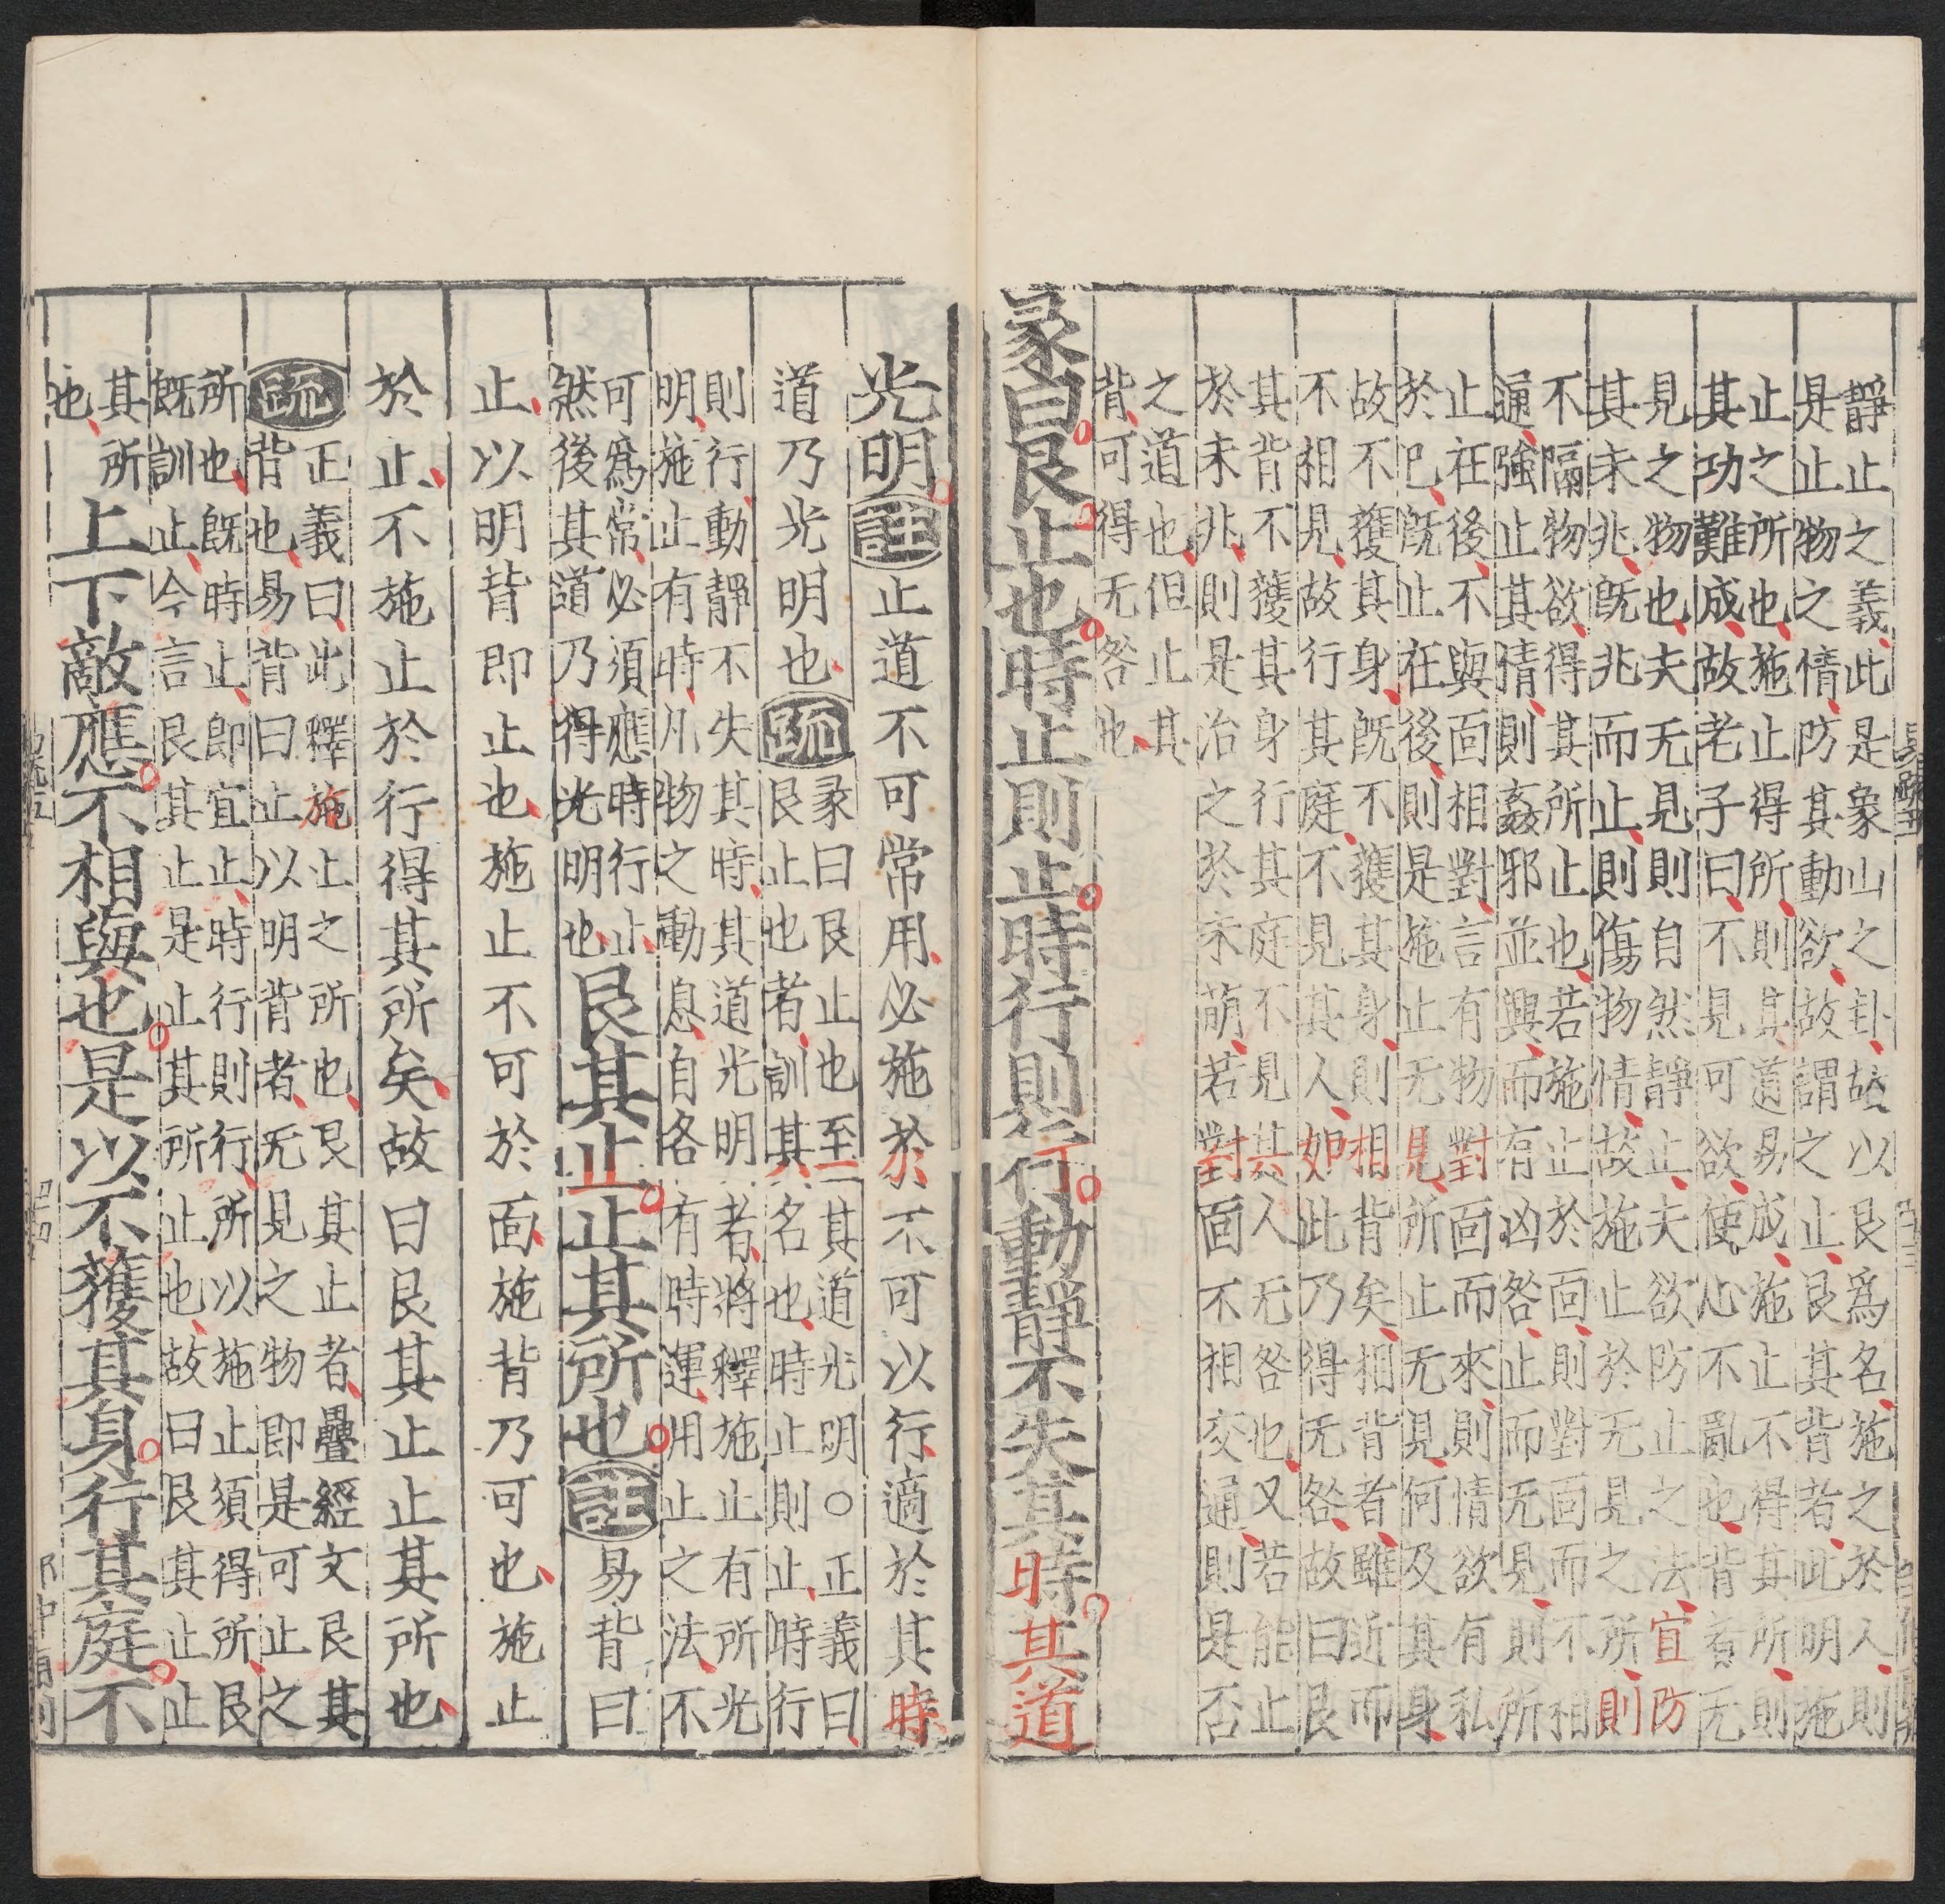 靜止之義此是象山之卦故以艮爲名施之於人則
是止物之情防其動欲故謂之止艮其背者此明施
止之所也施止得所則其道易成施止不得其所則
其功難成故老子曰不見可欲使心不亂也背者无
見之物也夫无見則自然靜止夫欲防止之法宜防
其未兆旣兆而止則傷物情故施止於无見之所則
不隔物欲得其所止也若施止於面則對面而不相
通強止其情則姦邪並興而有凶咎止而无見則所
止在後不與面相對言有物對面而來則情欲有私
於巳旣止在後則是施止无見所止无見何及其身
故不獲其身旣不獲其身則相背矣相背者雖近而
不相見故行其庭不見其人如此乃得无咎故曰艮
其背不獲其身行其庭不見其人无咎也又若能止
於未兆則是治之於未萌若對面不相交通則是否
之道也但止其
背可得无咎也
彖曰艮止也時止則止時行則行動靜不失其時其道
光明註止道不可常用必施於不可以行適於其時
道乃光明也疏
彖曰艮止也至其道光明○正義曰
艮止也者訓其名也時止則止時行
則行動靜不失其時其道光明者將釋施止有所光
明施止有時凡物之動息自各有時運用止之法不
可爲常必須應時行止
然後其道乃得光明也
艮其止止其所也註易背曰
止以明背即止也施止不可於面施背乃可也施止
於止不施止於行得其所矣故曰艮其止止其所也
疏
正義曰此釋施止之所也艮其止者疊經文艮其
背也易背曰止以明背者无見之物即是可止之
所也旣時止即宜止時行則行所以施止須得所艮
旣訓止今言艮其止是止其所止也故曰艮其止止
其所
也
上下敵應不相與也是以不獲其身行其庭不